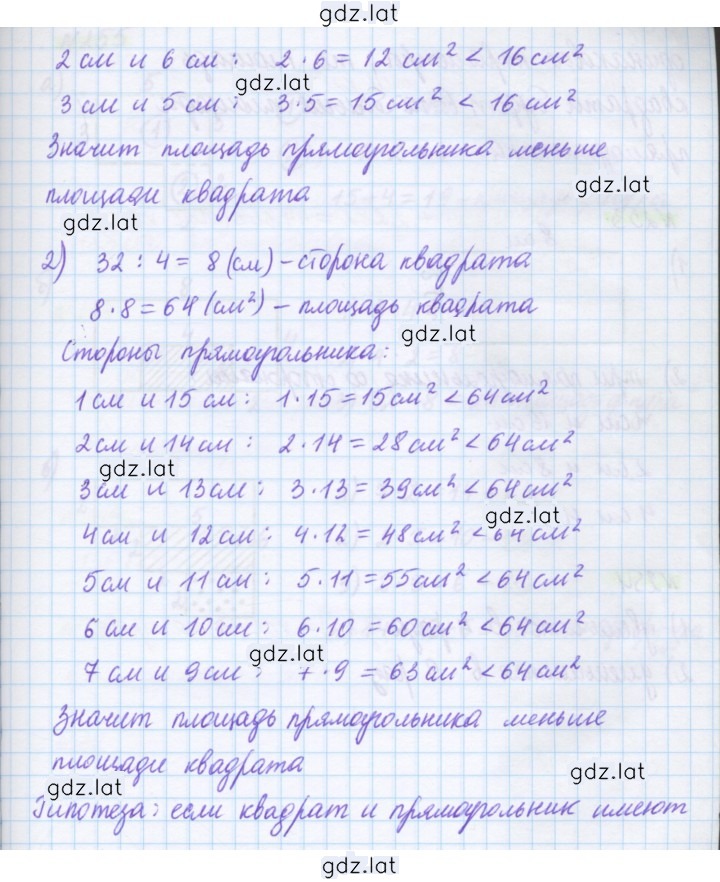 gdz.lat
2 см и 6 см: 2·6=12 см² < 16 см²
gdz.lat
3 см и 5 см: 3·5=15 см² < 16 см²
Значит площадь прямоугольника меньше
gdz.lat
площади квадрата
gdz.lat
2) 32:4= 8(см)-сторона квадрата
8·8=64(см²)- площадь квадрата
gdz.lat
Стороны прямоугольника:
1 см и 15 см: 1·15=15см² <64см²
2см и 14см: 2·14=28см² <64см²
gdz.lat
3см и 13см: 3·13=39см² <64см²
gdz.lat
4см и 12см: 4·12=48см² <64см²
5см и 11см: 5·11=55см² <64см²
6см и 10см: 6·10=60см² <64см²
gdz.lat
7см и 9см: 7·9=63см² <64см²
Значит площадь прямоугольника меньше
площади квадрата
gdz.lat
gdz.lat
Гипотеза: если квадрат и прямоугольник имеют
gdz.lat